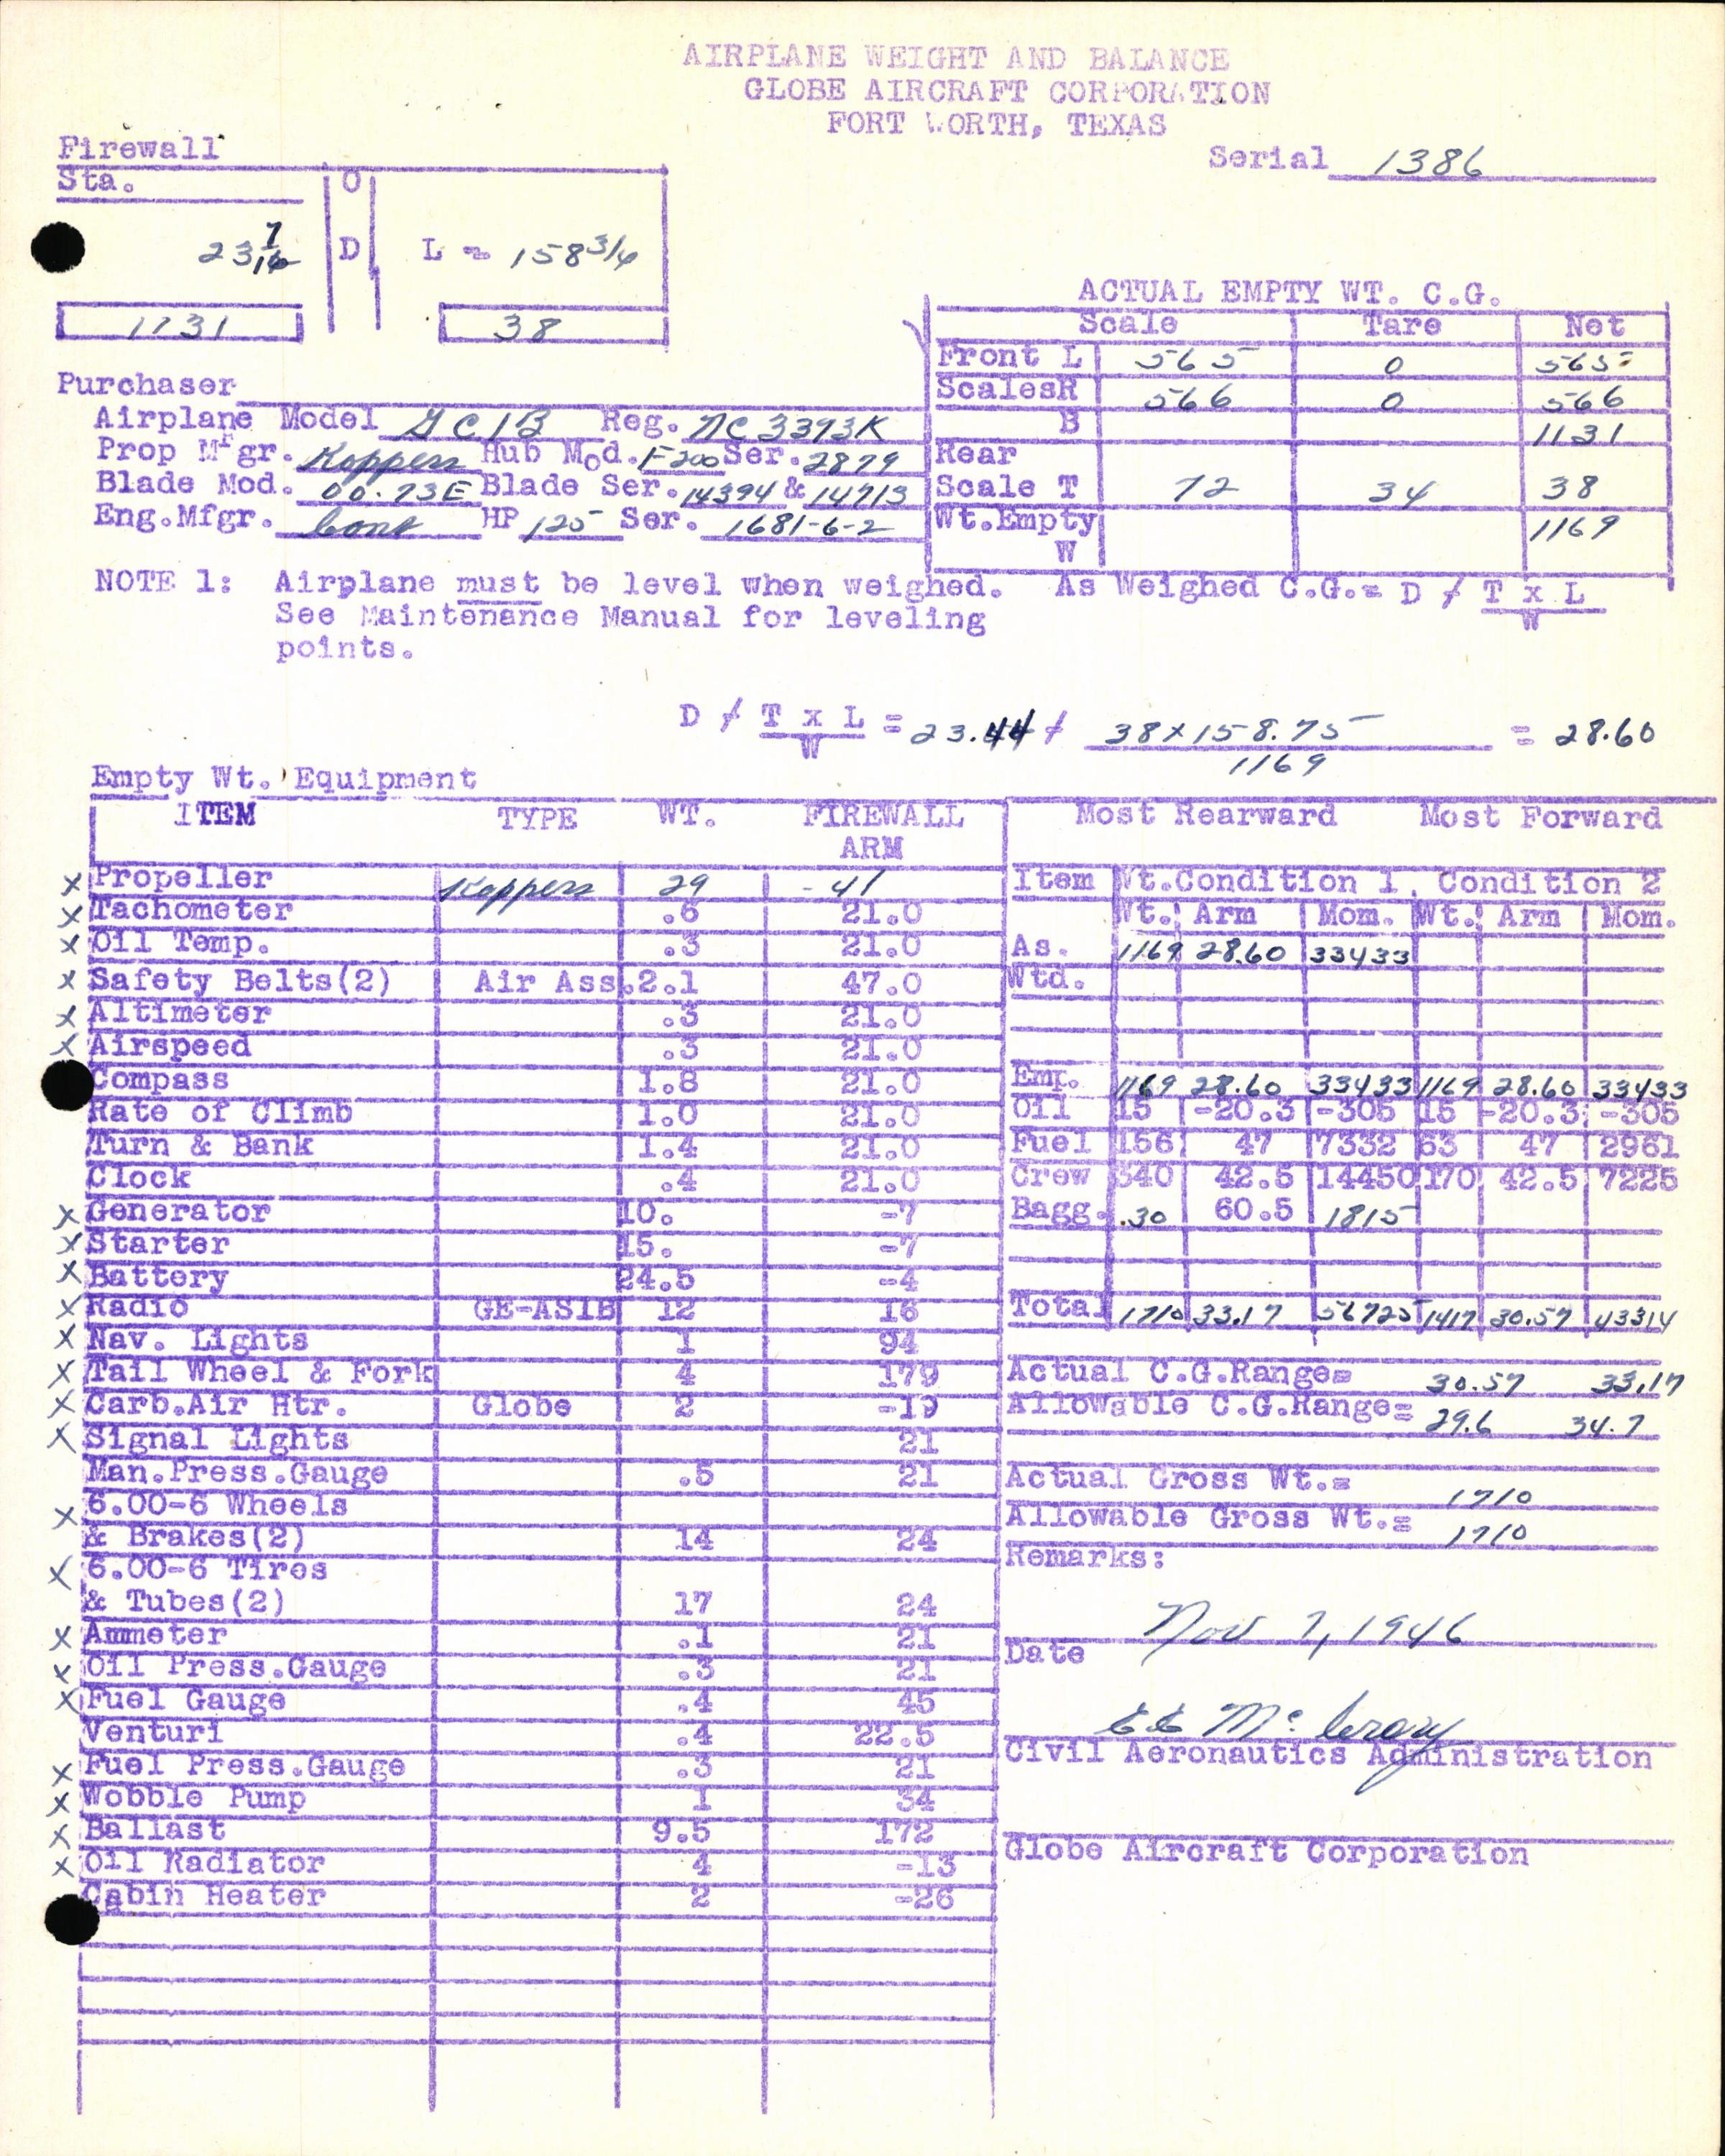 AIRPLANE WEIGHT AND BALANCE
GLOBE AIRCRAFT CORPORATION
FORT WORTH, TEXAS
Serial 1386
Firewall
Sta. O
23 7/16 D L = 158 3/4
1131 38
ACTUAL EMPTY WT. C.G.
Scale Tare Net
Front L 565 0 565
Scales R 566 0 566
B 1131
Rear
Scale T 72 34 38
Wt.Empty 1169
W
Purchaser
Airplane Model GC1B Reg. NC3393K
Prop Mfgr. Koppers Hub Mod. F200 Ser. 2879
Blade Mod. 00.73E Blade Ser. 14394 & 14713
Eng.Mfgr. Cont HP 125 Ser. 1681-6-2
NOTE 1: Airplane must be level when weighed. As Weighed C.G.= D ≠ T x L
See Maintenance Manual for leveling W
points.
D ≠ T x L = 23.44 + 38 x 158.75 = 28.60
W 1169
Empty Wt. Equipment
ITEM TYPE WT. FIREWALL
ARM
X Propeller Koppers 29 -41
X Tachometer .6 21.0
X Oil Temp. .3 21.0
X Safety Belts(2) Air Ass. 2.1 47.0
X Altimeter .3 21.0
X Airspeed .3 21.0
Compass 1.8 21.0
Rate of Climb 1.0 21.0
Turn & Bank 1.4 21.0
Clock .4 21.0
X Generator 10. -7
X Starter 15. -7
X Battery 24.5 -4
X Radio GE-AS1B 12 16
X Nav. Lights 1 94
X Tail Wheel & Fork 4 179
X Carb.Air Htr. Globe 2 -19
X Signal Lights 21
Man.Press.Gauge .5 21
X 6.00-6 Wheels
& Brakes(2) 14 24
X 6.00-6 Tires
& Tubes(2) 17 24
X Ammeter .1 21
X Oil Press.Gauge .3 21
X Fuel Gauge .4 45
Venturi .4 22.5
X Fuel Press.Gauge .3 21
X Wobble Pump 1 34
X Ballast 9.5 172
X Oil Radiator 4 -13
Cabin Heater 2 -26
Most Rearward Most Forward
Item Wt.Condition 1. Condition 2
Wt. Arm Mom. Wt. Arm Mom.
As. 1169 28.60 33433
Wtd.
Emp. 1169 28.60 33433 1169 28.60 33433
Oil 15 -20.3 -305 15 -20.3 -305
Fuel 156 47 7332 63 47 2961
Crew 340 42.5 14450 170 42.5 7225
Bagg. .30 60.5 1815
Total 1710 33.17 56725 1417 30.57 43314
Actual C.G.Range= 30.57 33.17
Allowable C.G.Range= 29.6 34.7
Actual Gross Wt.= 1710
Allowable Gross Wt.= 1710
Remarks:
Nov 7, 1946
Date
EE McCrory
Civil Aeronautics Administration
Globe Aircraft Corporation